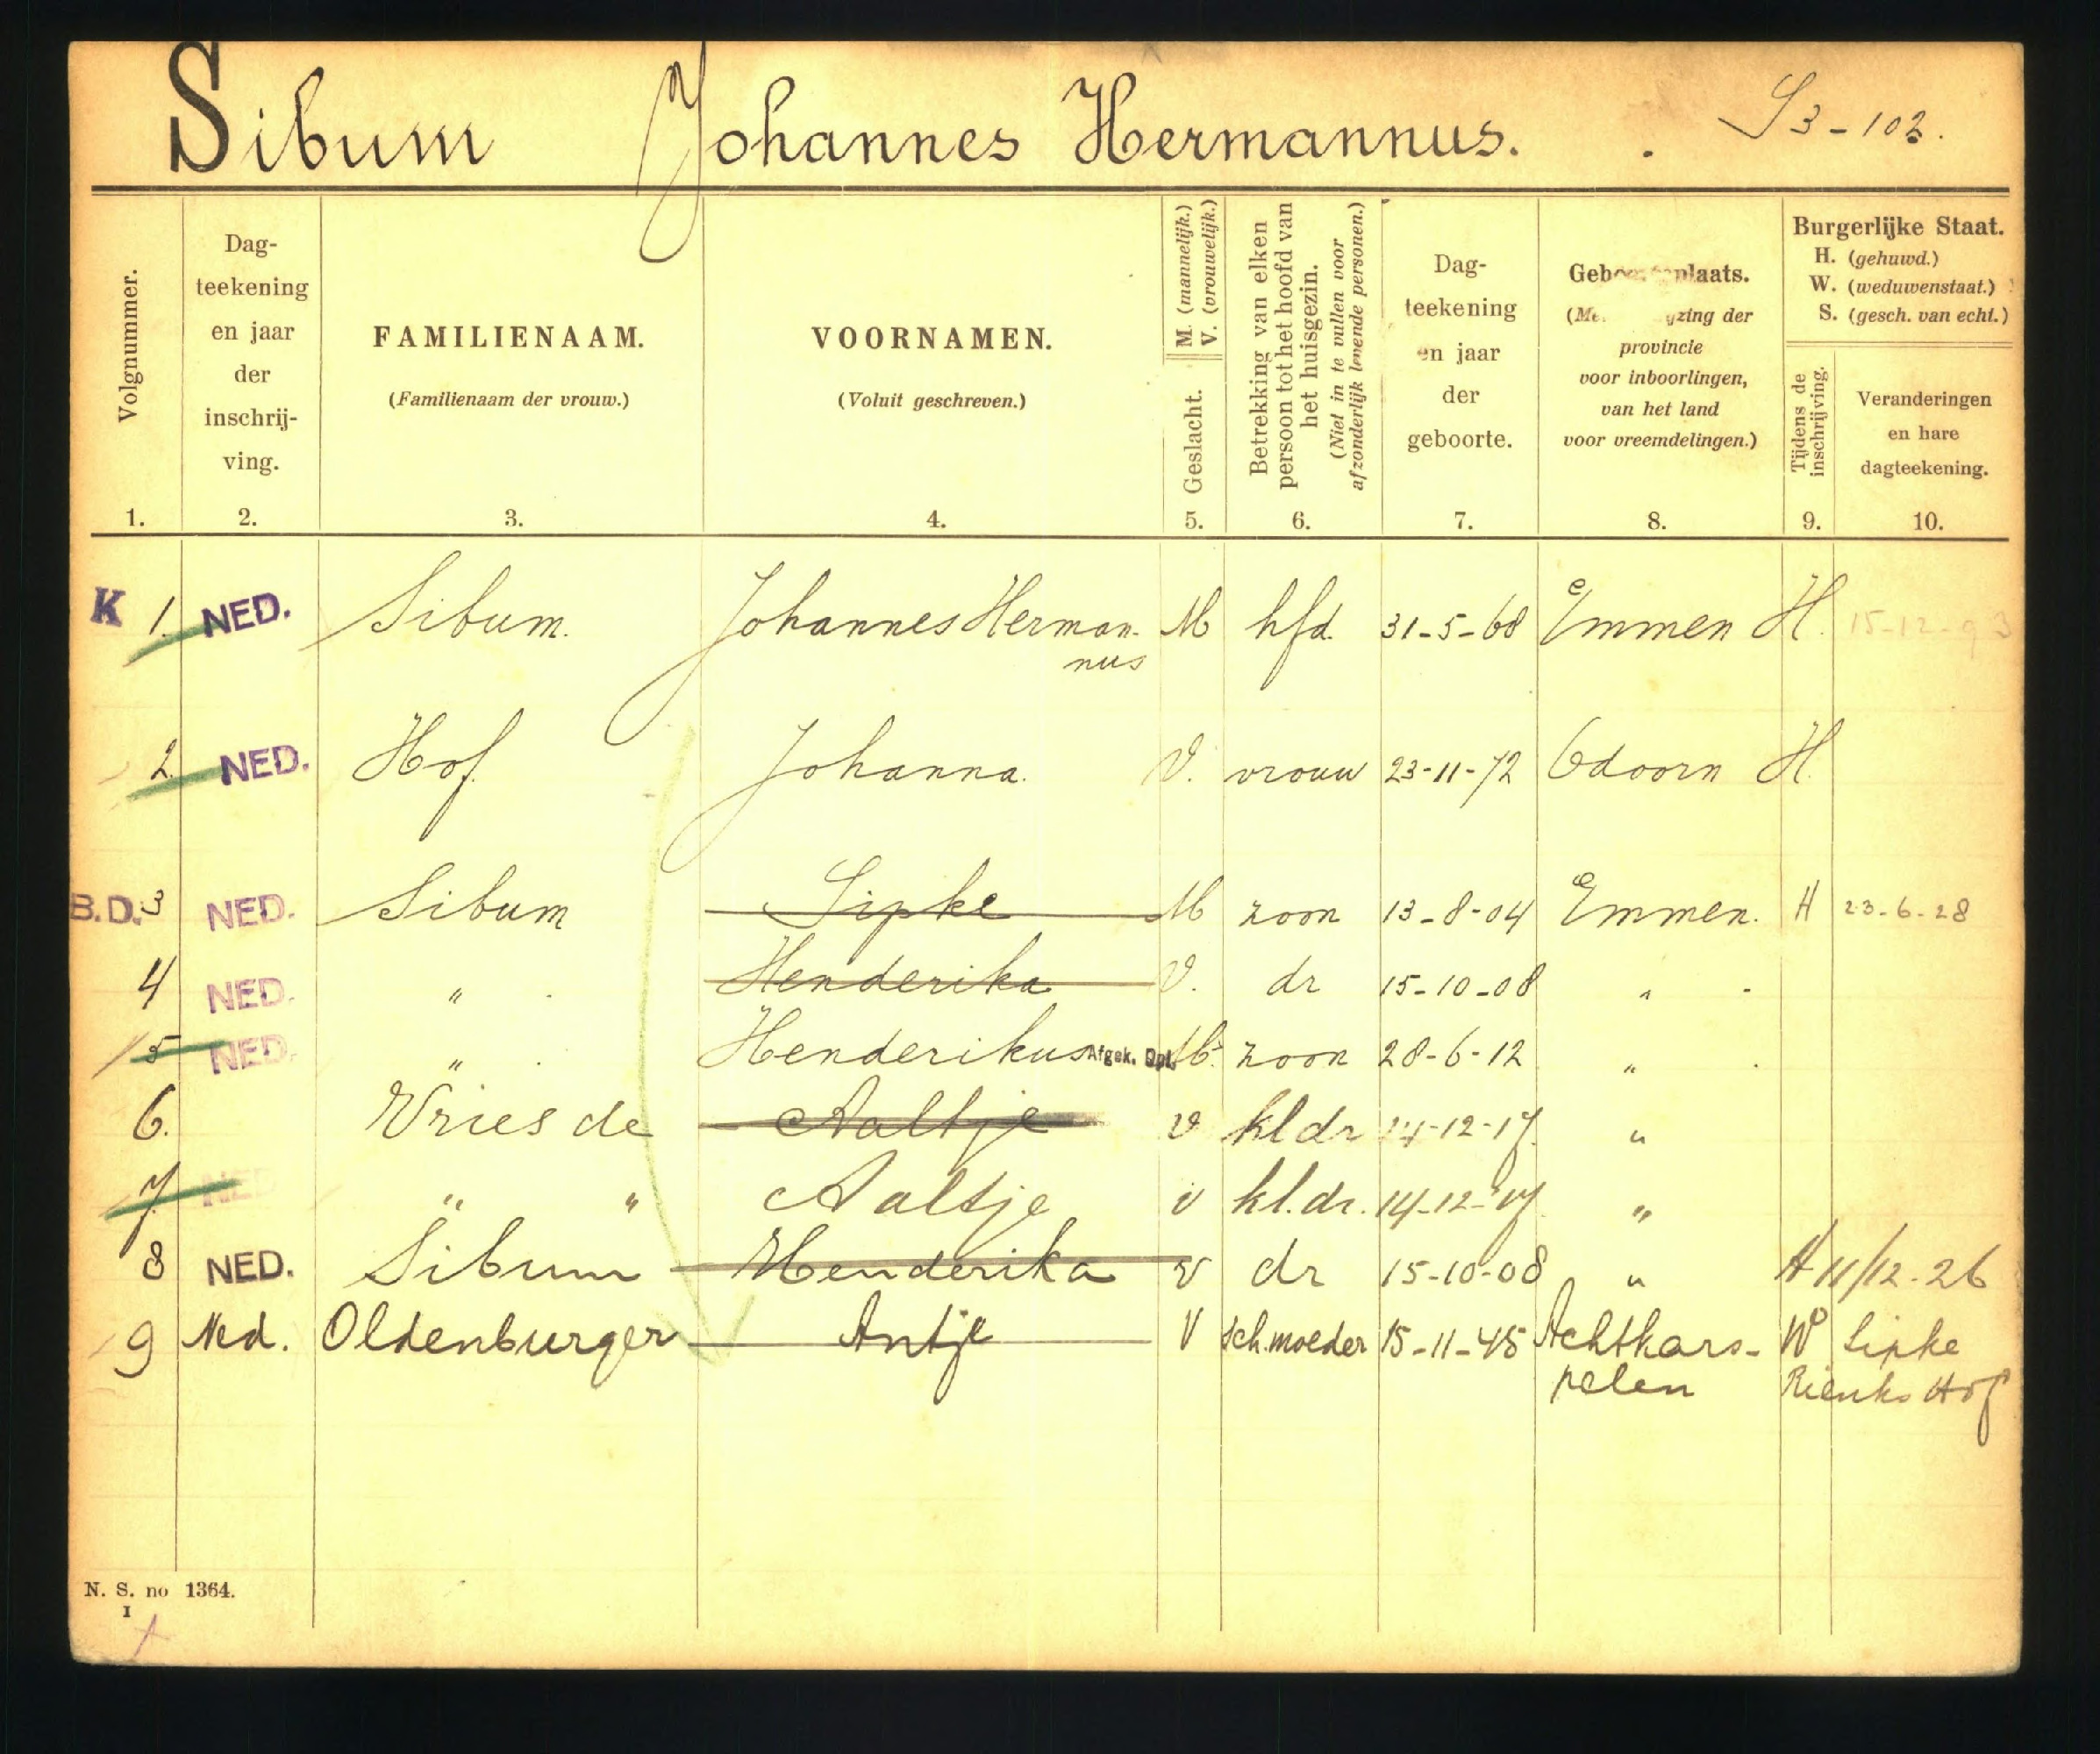 Sibum Johannes Hermannus. S3-102.
Volgnummer.
Dag-
teekening
en jaar
der
inschrij-
ving.
FAMILIENAAM.
(Familienaam der vrouw.)
VOORNAMEN.
(Voluit geschreven.)
M. (mannelijk.)
V. (vrouwelijk.)
Geslacht.
Betrekking van elken
persoon tot het hoofd van
het huisgezin.
(Niet in te vullen voor
afzonderlijk levende personen.)
Dag-
teekening
en jaar
der
geboorte.
plaats.
yzing der
provincie
voor inboorlingen,
van het land
voor vreemdelingen.)
Burgerlijke Staat.
H. (gehuwd.)
W. (weduwenstaat.)
S. (gesch. van echt.)
Tijdens de
inschrijving.
Veranderingen
en hare
dagteekening.
1. 2. 3. 4. 5. 6. 7. 8. 9. 10.
K 1. NED. Sibum. Johannes Herman- M hfd. 31-5-68 Emmen H. 15-12-93
nus
2. NED. Hof. Johanna. V. vrouw 23-11-72 Odoorn H.
B.D. 3 NED. Sibum Sipke M zoon 13-8-04 Emmen. H 23-6-28
4 NED. " Henderika V. dr 15-10-08 "
5 NED. " Henderikus Afgek. Dpl. M. zoon 28-6-12 "
6. Vries de Aaltje v kl dr 14-12-17. "
7. NED " " Aaltje v kl.dr. 14-12-17. "
8 NED. Sibum Henderika v dr 15-10-08 " H 11/12-26
9 Ned. Oldenburger Antje V sch.moeder 15-11-45 Achtkars- W Sipke
pelen Rienks Hof
N. S. no 1364.
I